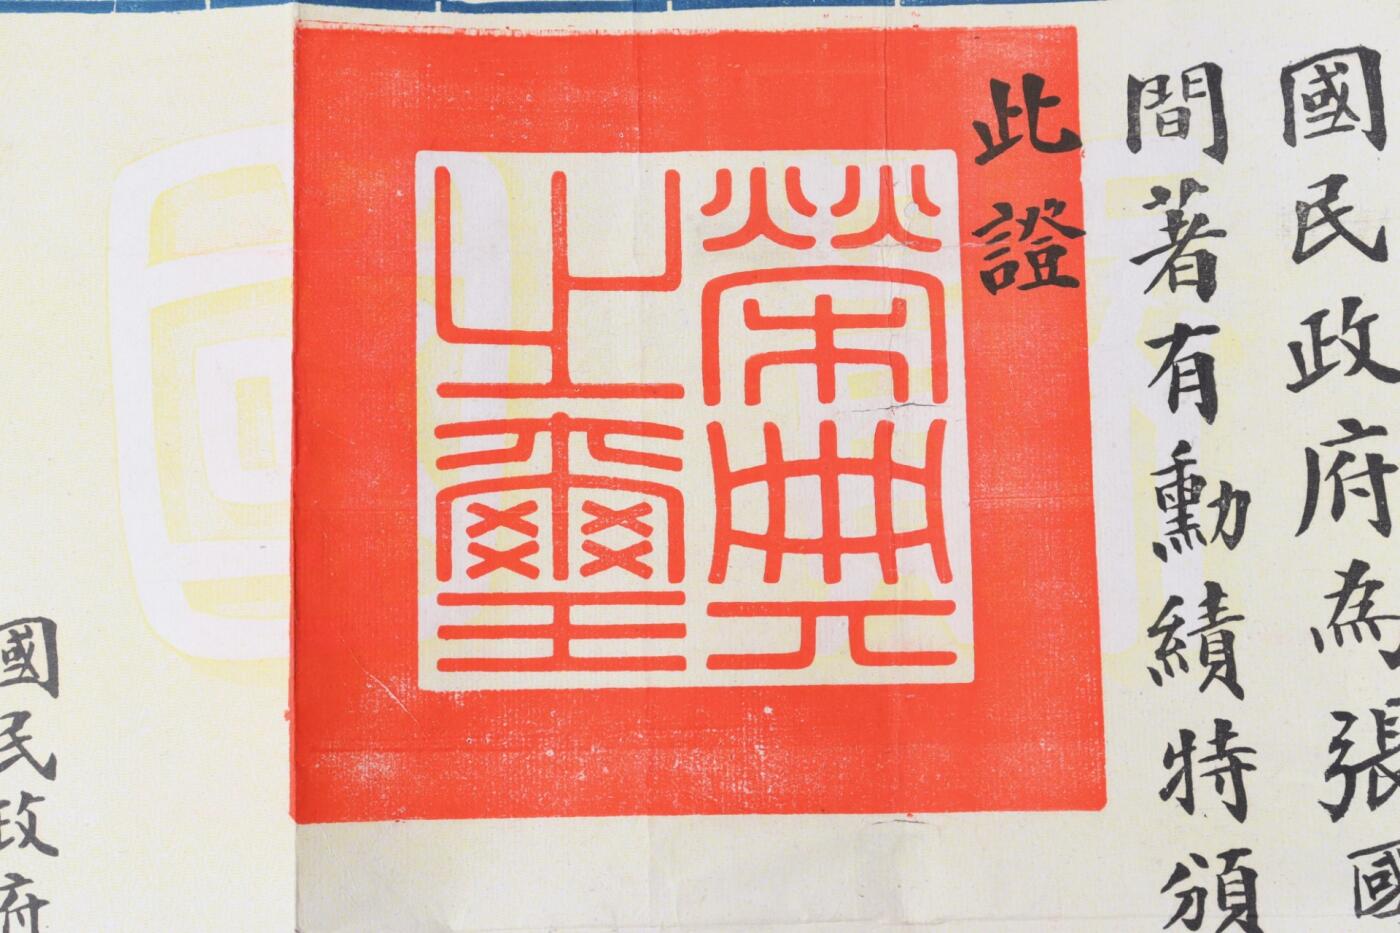 國民政府為張國
間著有勳績特頒
此證
榮典
之璽
國民政府